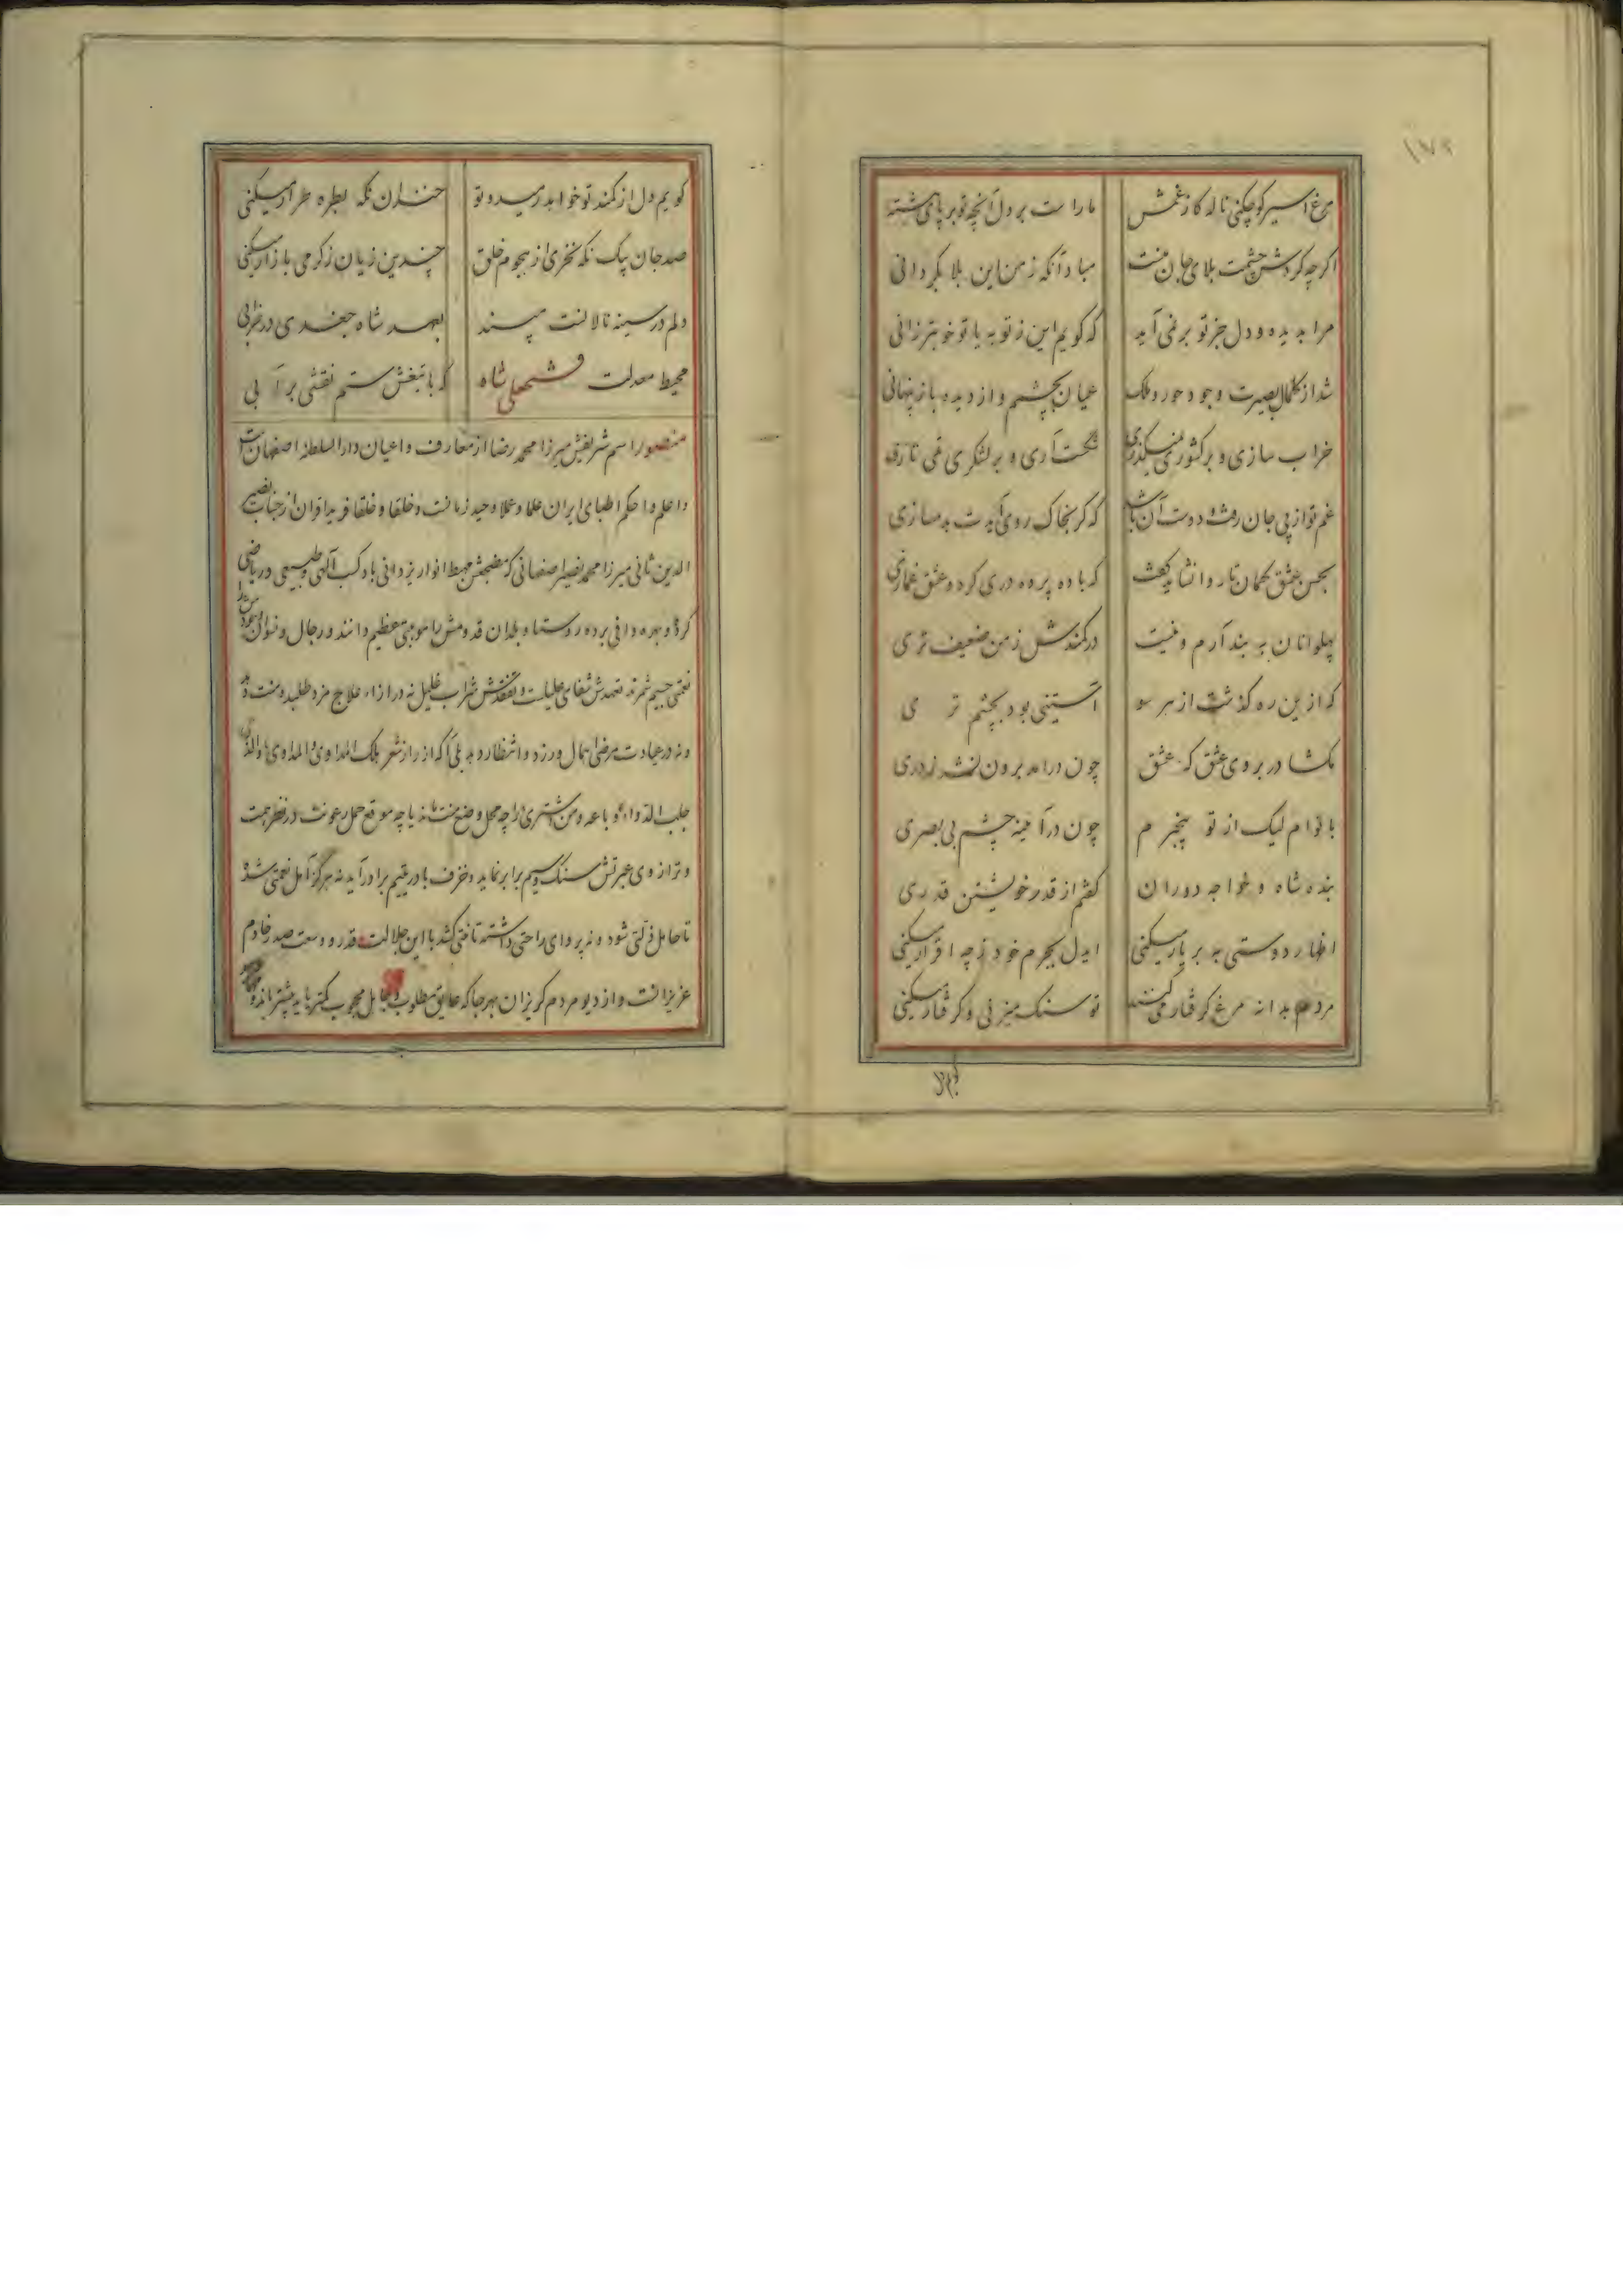 ۱۷۹
مرغ اسیر کو چکنی ناله کاز غمش
ما را ست بر دل آنچه تو بر پای بسته
اگر چه گردش چشمت بلای جان منست
مباد آنکه ز من این بلا بگردانی
مرا بدیده و دل جز تو بر نمی آید
که گویم این ز تو به یا تو خوبتر زانی
شد از کمال بصیرت وجود حور و ملک
عیان بچشم و از دیده باز پنهانی
خراب سازی و بر کشوری
شکست آری و بر لشکری نمی تازی
غم تو از پی جان رفت و دوست آن باشد
که گر بخاک روی آیدت بدمسازی
بحسن عشق گمان ناروا نشاید
که باده پرده دری کرد و عشق غمازی
پهلوانان به بند آرم و نیست
در کمندش ز من ضعیف تری
که ازین ره گذشت از هر سو
آستینی بود بچشم تر ی
مگشا در بروی عشق که عشق
چون درآمد برون نشد ز دری
با توام لیک از تو بیخبر م
چون در آیینه چشم بی بصری
بنده شاه و خواجه دوران
گفتم از قدر خویشتن قدری
اظهار دوستی به بر یار میکنی
ایدل بجرم خود ز چه اقرار میکنی
مردم بدانه مرغ گرفتار می کنند
تو سنگ میزنی و گرفتار میکنی
گویم دل از کمند تو خواهد رمید و تو
خندان نگه بطره طرار میکنی
صد جان بیک نگه نخری از هجوم خلق
چندین زیان ز گرمی بازار میکنی
دلم در سینه نالانست مپسند
بعهد شاه جغدی در خرابی
محیط معدلت فتحعلی شاه
که با تیغش ستم نقشی بر آ بی
منصور اسم شریفش میرزا محمد رضا از معارف و اعیان دارالسلطنه اصفهان است
و اعلم و احکم اطبای ایران علما و عملا وحید زمانست و خلقا و خلقا فرید اقران از جناب نصیر
الدین ثانی میرزا محمد نصیر اصفهانی که مضجعش مهبط انوار یزدانی باد کسب آلهی و طبیعی و ریاضی
کرده و بهره وافی برده روستا و بلدان قدومش را موهبتی عظیم دانند و رجال و نسوان
نعمتی جسیم شمرند تعهدش شفای علیلست و تفقدش شراب غلیل نه در ازاء علاج مزد طلبد و منت نهد
و نه در عیادت مرضی اهمال ورزد و انتظار دهد بلی آنکه از راز شعر بک المداوی و المداوی
جلب الدواء و باعه و من اشتری را چه محل وضع منت ماند یا چه موقع حمل رعونت در نظر همت
و ترازوی عبرتش سنگ و سیم برابر نماید و خزف با در یتیم برادر آید نه هرگز آمل نعمتی شد
تا حامل ذلتی شود و نه پروای راحتی داشته تا محنتی کشد با این جلالت قدر و وسعت صدر خادم
عزیزانست و از دیو مردم گریزان بهر جا که عایق مطلوب و حایل محبوب کمتر باید بیشتر ماند